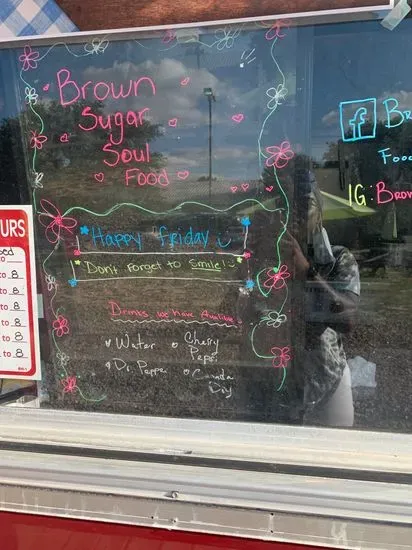 Brown
Sugar
Soul
Food
Happy friday
Don't forget to Smile!
Drinks we have Available
Water
Cherry Pepsi
Dr. Pepper
Canada Dry
URS
to 8
to 8
to 8
to 8
to 8
to 8
f
IG: